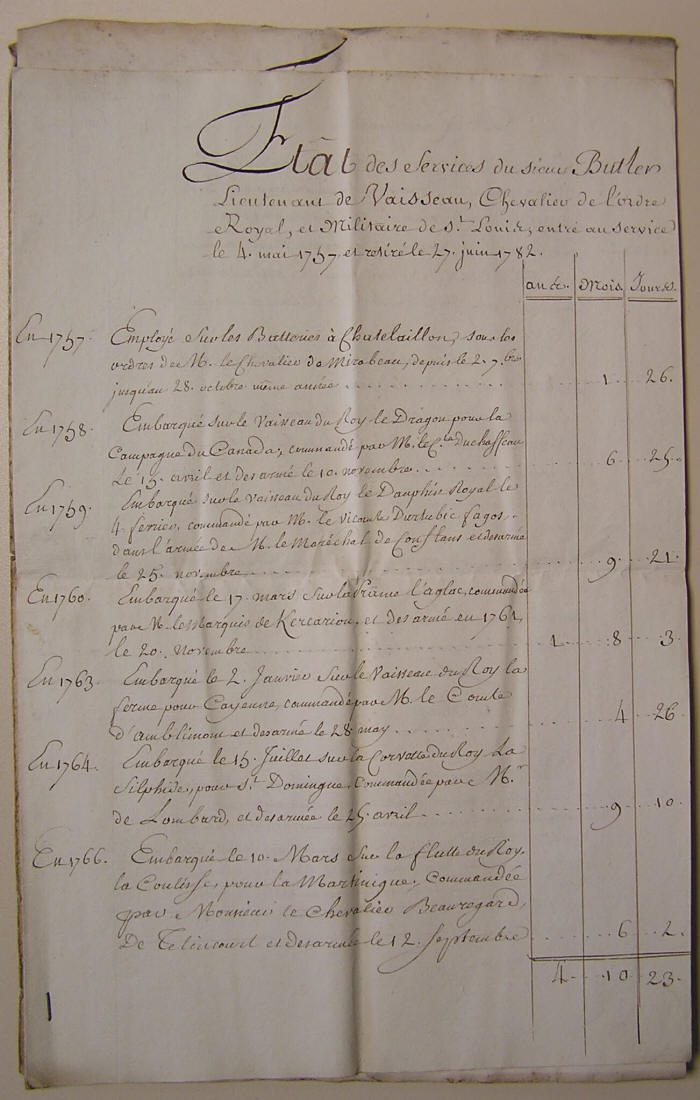 Etât des Services du sieur Butler
Lieutenant de Vaisseau, Chevalier de l'ordre
Royal, et Militaire de St. Louis, entré au service
le 4. mai 1757 et retiré le 27. juin 1782.
ans. Mois Jours.
En 1757. Employé sur les Batteries à Chatelaillon, sous les
ordres de M. le Chevalier de Mirabeau, depuis le 2. 7.bre
jusqu'au 28. octobre même année 1. 26.
En 1758. Embarqué sur le Vaisseau du Roy le Dragon pour la
Campagne du Canada, commandé par M. le C. Duchaffeau
Le 15. avril et desarmé le 10. novembre 6. 25.
En 1759. Embarqué sur le Vaisseau du Roy le Dauphin Royal le
4. fevrier, commandé par M. le vicomte Durtubie fagos,
dans l'armée de M. le Maréchal de Conflans et desarmé
le 25. novembre 9. 21.
En 1760. Embarqué le 17. mars sur la Prame l'aglaé, commandée
par M. le Marquis de Kercariou, et desarmé en 1761,
le 20. Novembre 1. 8. 3.
En 1763. Embarqué le 2. Janvier sur le Vaisseau du Roy la
ferme pour Cayenne, commandé par M. le Comte
d'Amblimont et desarmé le 28 may 4 26
En 1764. Embarqué le 15. Juillet sur la Corvette du Roy La
Silphide, pour St. Domingue, Commandée par Mr.
de Lombard, et desarmée le 25. avril 9 10.
En 1766. Embarqué le 10. Mars Sur la flutte du Roy,
la Coulisse, pour la Martinique, Commandée
par Monsieur le Chevalier Beauregard,
De et desarmée le 12. Septembre 6 2.
4. 10 23.